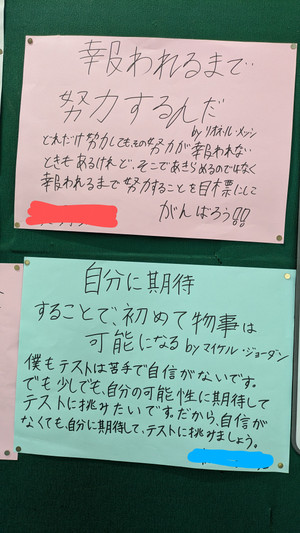 報われるまで
努力するんだ
by リオネル・メッシ
どれだけ努力しても、その努力が報われない
ときもあるけれど、そこであきらめるのではなく
報われるまで努力することを目標にして
がんばろう!!
自分に期待
することで、初めて物事は
可能になる by マイケル・ジョーダン
僕もテストは苦手で自信がないです。
でも少しでも、自分の可能性に期待して
テストに挑みたいです。だから、自信が
なくても、自分に期待して、テストに挑みましょう。